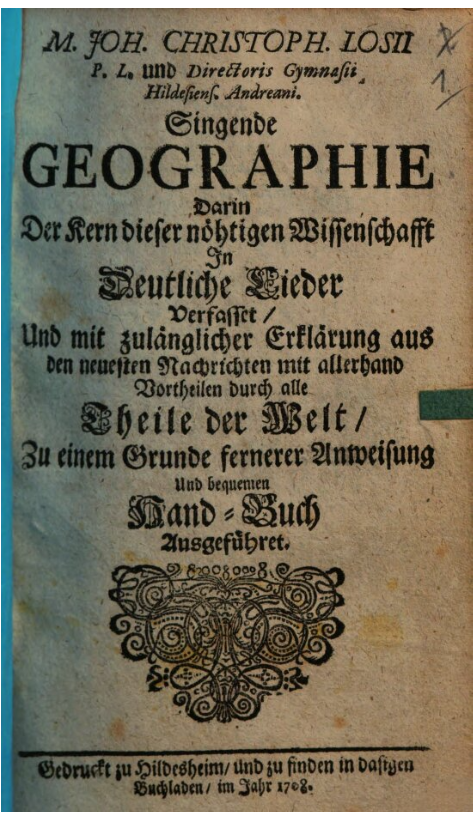 M. JOH. CHRISTOPH. LOSII
P. L. und Directoris Gymnasii
Hildesiens. Andreani.
Singende
GEOGRAPHIE
Darin
Der Kern dieser nöhtigen Wissenschafft
In
Deutliche Lieder
Verfasset /
Und mit zulänglicher Erklärung aus
den neuesten Nachrichten mit allerhand
Vortheilen durch alle
Theile der Welt /
Zu einem Grunde fernerer Anweisung
Und bequemen
Hand-Buch
Ausgeführet.
Gedruckt zu Hildesheim/ und zu finden in dasigen
Buchladen / im Jahr 1708.